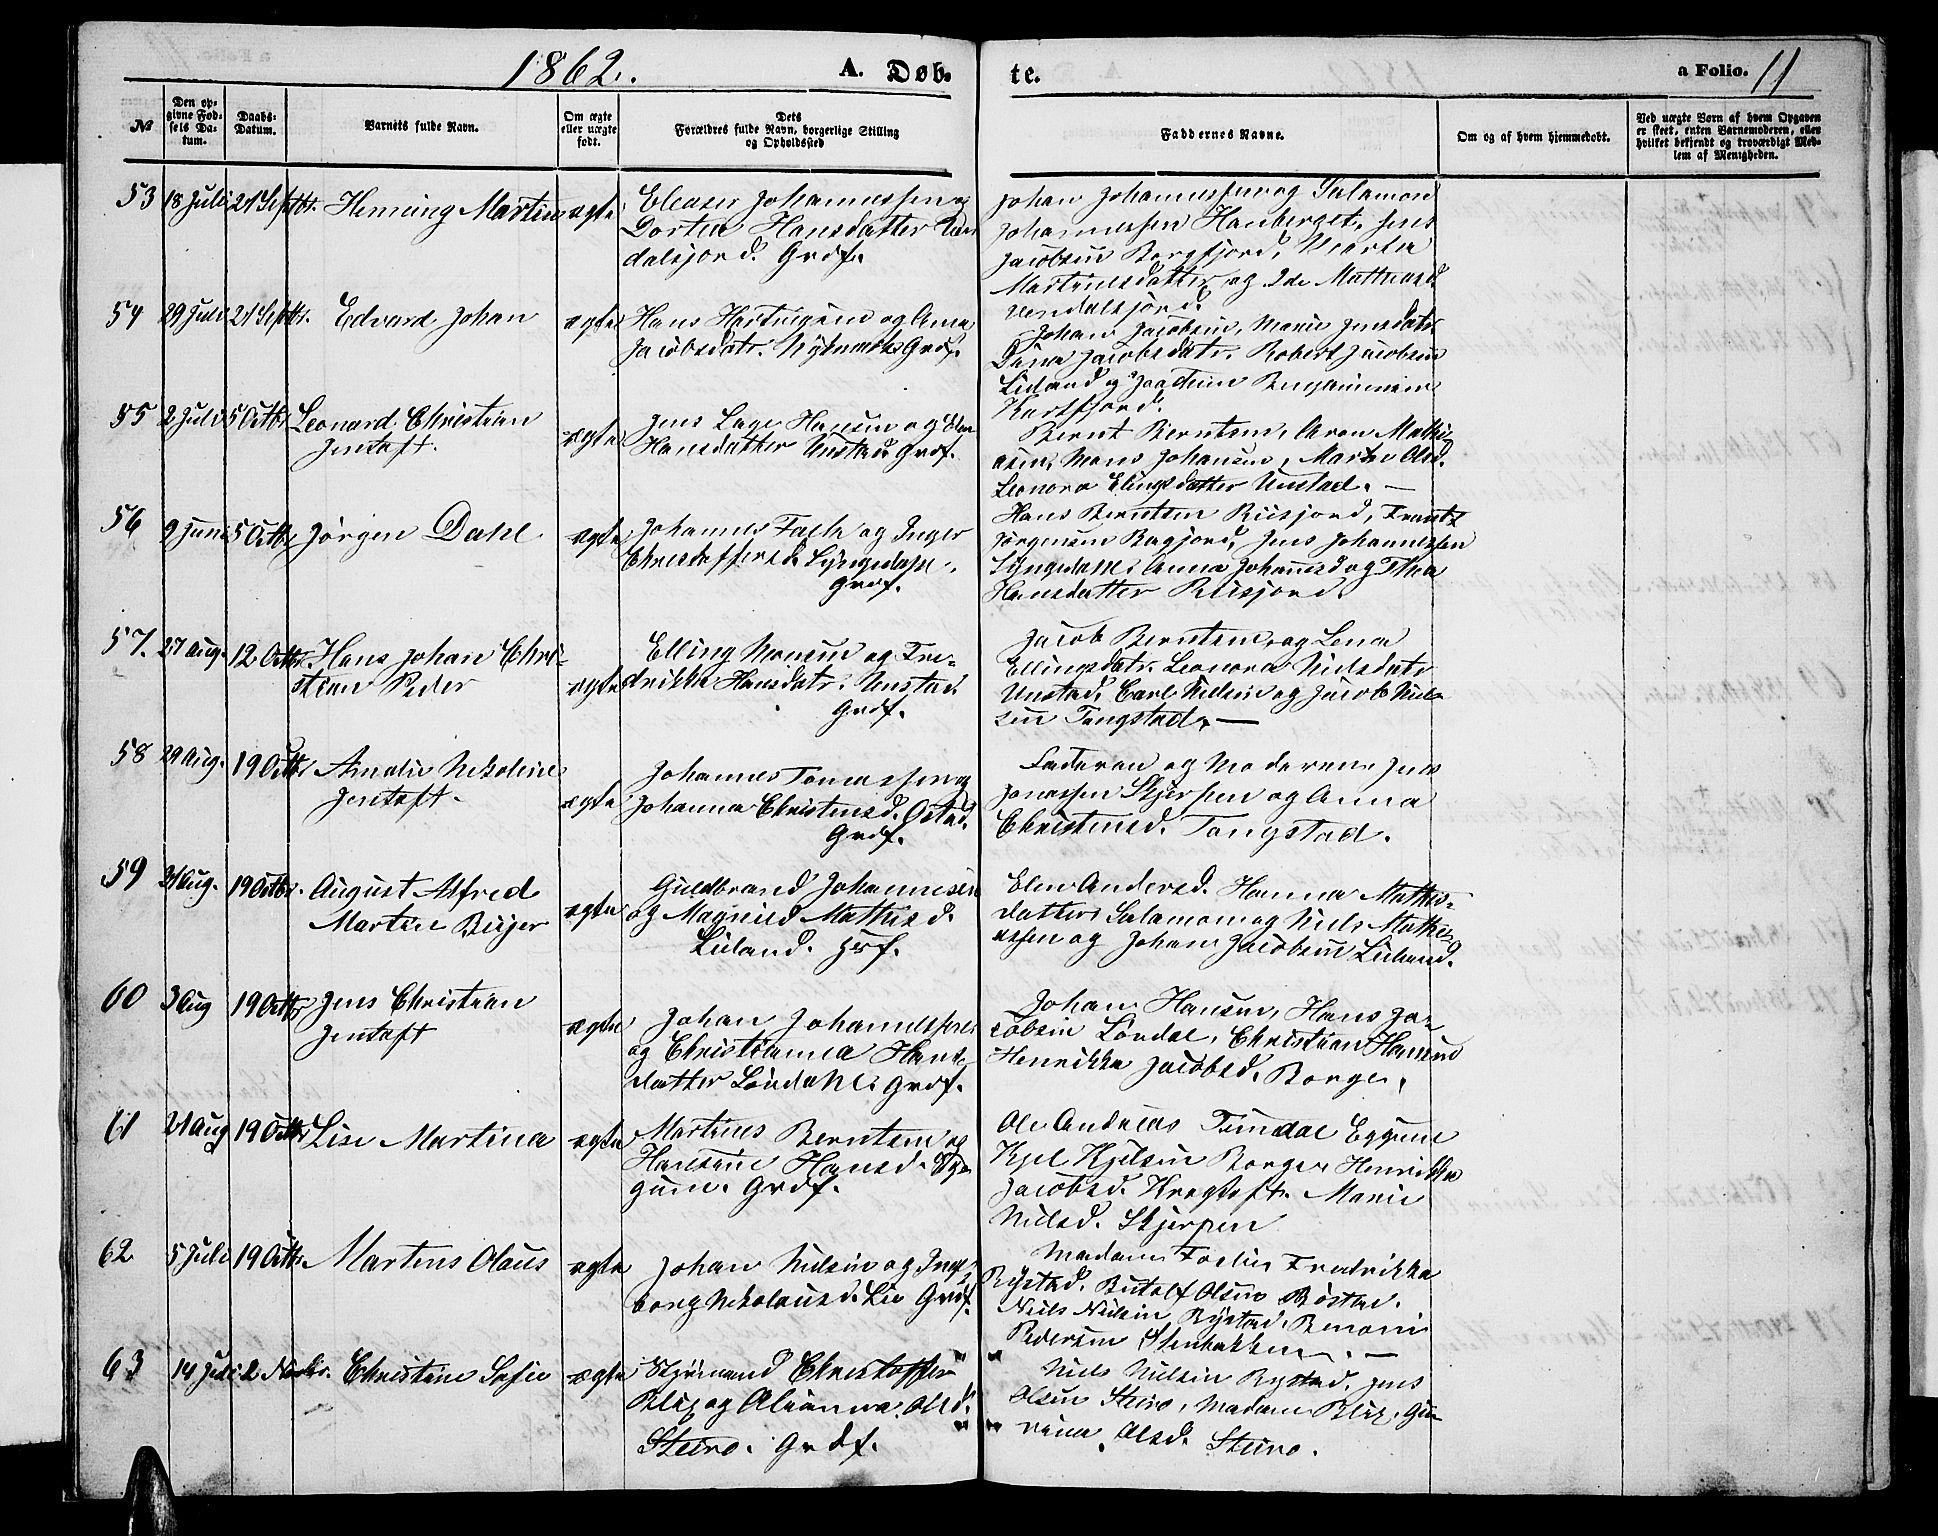 1862. A. Døb- te. a Folio. 11
№
Den op-
givne Fød-
sels Da-
tum.
Daabs-
Datum.
Barnets fulde Navn.
Om ægte
eller uægte
født.
Dets
Forældres fulde Navn, borgerlige Stilling
og Opholdssted
Faddernes Navne.
Om og af hvem hjemmedøbt.
Ved uægte Børn af hvem Opgaven
er skeet, enten Barnemoderen, eller
hvilket bekjendt og troværdigt Med-
lem af Menigheden.
53 18 Juli 21 Septbr. Henning Martin ægte
Eleaser Johannessen og
Dortea Hansdatter
dalsjord. Grdf.
Johan Johannessen og Salamon
Johannessen Hauberget, Jens
Jacobsen Borgfjord, Marta
Martinesdatter og Ide Mathiasd.
54 29 Juli 21 Septbr. Edvard Johan ægte
Hans Hartvigsen og Ana
Jacobsdatr. Nykmark Grdf.
Johan Jacobsen, Marie Jensdatr.
Dana Jacobsdatr. Robert Jacobsen
Lieland og Joachim Benjaminsen
Kartfjord.
55 2 Juli 5 Octbr Leonard Christian
Jentoft.
ægte
Jens Lage Hansen og Elen
Hansdatter Unstad Grdf.
Bernt Berntsen, Aron Mathi-
asen, Mons Johansen, Marta Olsd.
Leonora Elingsdatter Unstad. —
56 9 Juni 5 Octbr Jørgen Dahl ægte
Johannes Falk og Inger
Christoffersd. Lyngedahl.
Grdf.
Hans Berntsen Riisjord, Frantz
Jørgensen Bagjord, Jens Johannessen
Lyngedahl Anna Johansd og Thea
Hansdatter Riisjord.
57. 27 Aug. 12 Octbr. Hans Johan Chri-
stian Peder
ægte
Elling Monsen og Fre-
drikke Hansdatr. Unstad.
Grdf.
Jacob Berntsen og Lena
Ellingsdatr. Leonora Nielsdatr
Unstad, Carl Nielsen og Jacob Niel-
sen Tangstad. —
58 29 Aug. 19 Octbr Amalie Nekoline
Jentoft.
ægte
Johannes Tomassen og
Johanna Christensd. Ostad.
Grdf.
Faderen og Moderen Jens
Jonassen Skjerpen og Anna
Christensd. Tangstad.
59 31 Aug. 19 Octbr. August Alfred
Martin Birjer
ægte
Guldbrand Johannesen
og Magnild Mathisd.
Lieland. Hsf.
Elen Andersd. Hanna Mathis-
datter Salamon og Niels Mathi-
assen og Johan Jacobsen Lieland.
60 3 Aug 19 Octbr Jens Christian
Jentoft
ægte
Johan Johannessen
og Christianna Hans-
datter Løndahl. Grdf.
Johan Hansen, Hans Ja-
cobsen Løndal, Christian Hansen
Henrikka Jacobsd. Borge.
61 21 Aug 19 Octbr Lise Martina ægte
Martines Berntsen og
Hansine Hansd. Eg-
gum. Grdf.
Ole Andreas Tindal Eggum
Kjel Kjelsen Borge, Henrikka
Jacobsd. Kragtoft. Marie
Nielsd. Skjerpen
62 5 Juli 19 Octbr. Martens Olaus ægte
Johan Nielsen og Inge-
borg Nekolaisd. Lie Grdf.
Madam Foslie Fredrikka
Bøstad. Rutolf Olsen Bøstad.
Niels Nielsen Bystad, Benoni
Pedersen Stenbakken. —
63 14 Juli 2 Novbr. Christine Sofie ægte
Styrmand Christoffer
Blix og Alianna Olsd.
Steiro. Grdf.
Niels Nielsen Bystad, Jens
Olsen Steiro, Madam Blix, Gu-
rina Olsd. Steiro.